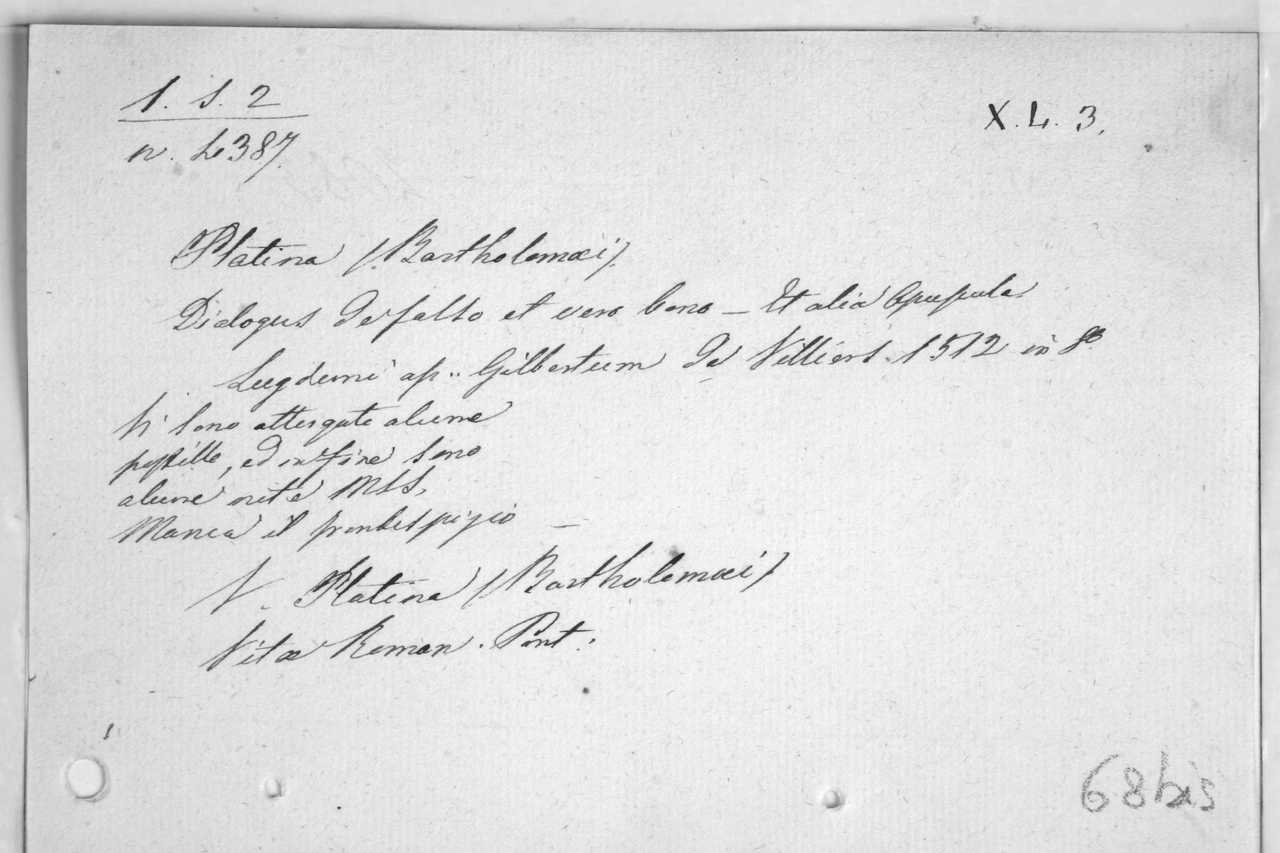 1. S. 2
n. 4387
X. L. 3.
Platina (Bartholomæi)
Dialogus de falso et vero bono — Et alia Opuscula
Lugduni ap. Gilbertum de Villiers. 1512 in 8º
Vi sono attergate alcune
postille, ed in fine sono
alcune note MSS.
Manca il frontespizio —
V. Platina (Bartholomæi)
Vitæ Roman. Pont.
68 bis